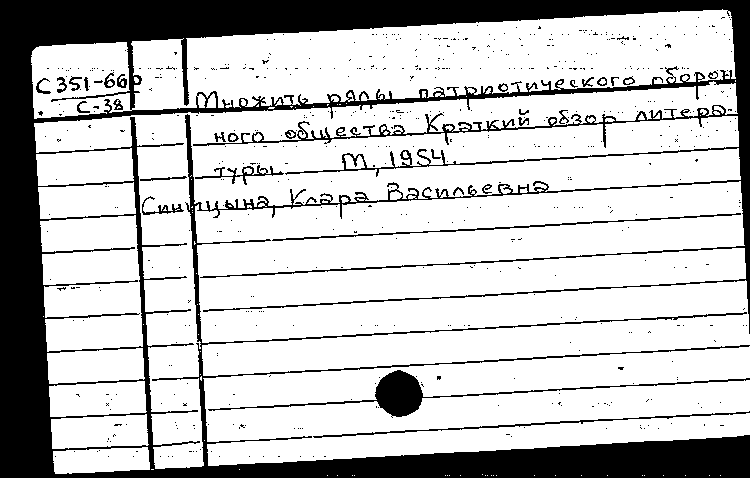 С351-66р
С-38
Множить ряды патриотического оборон
ного общества Краткий обзор литера-
туры. М., 1954.
Синицына, Клара Васильевна